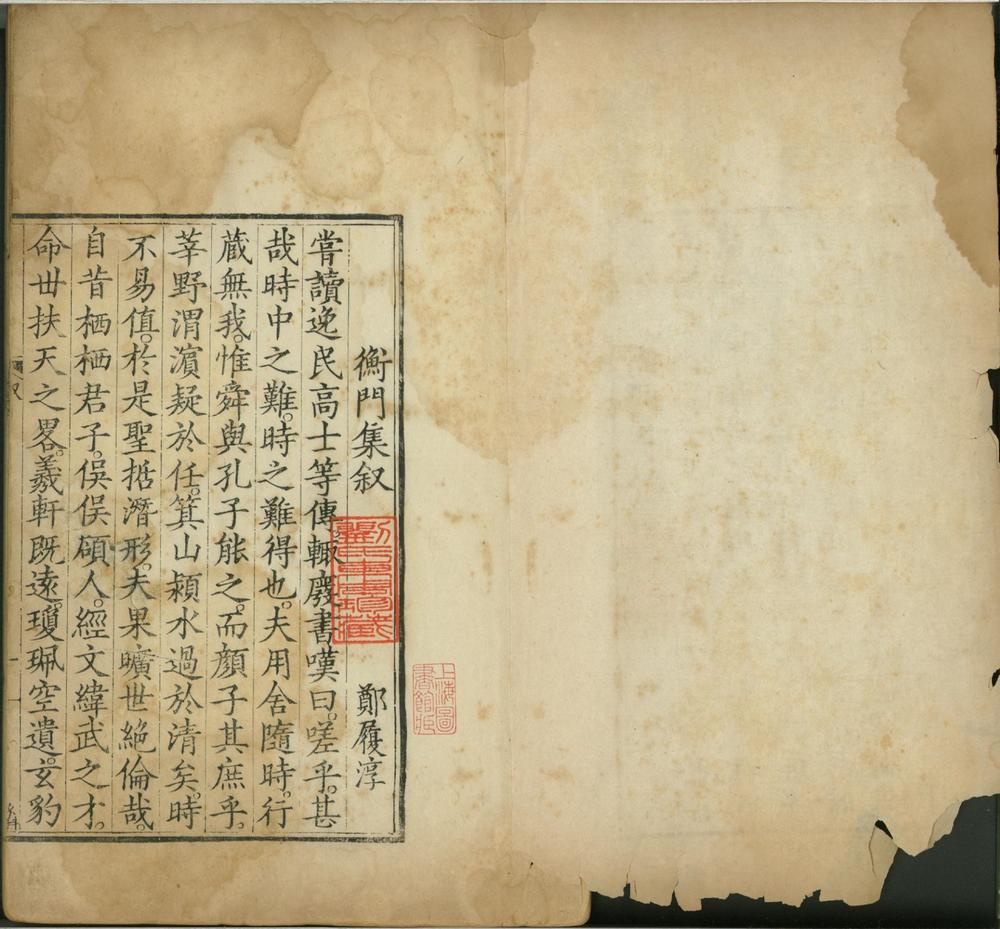 衡門集叙 鄭履淳
嘗讀逸民高士等傳輒廢書嘆曰。嗟乎。甚
哉時中之難。時之難得也。夫用舍隨時。行
蔵無我。惟舜與孔子能之。而顔子其庶乎。
莘野渭濵疑於任。箕山潁水過於清矣。時
不易值。於是聖括潛形。夫果曠世絶倫哉。
自昔栖栖君子。俁俁碩人。經文緯武之才。
命世扶天之畧。羲軒既逺。瓊珮空遺。玄豹
上海圖
書館藏